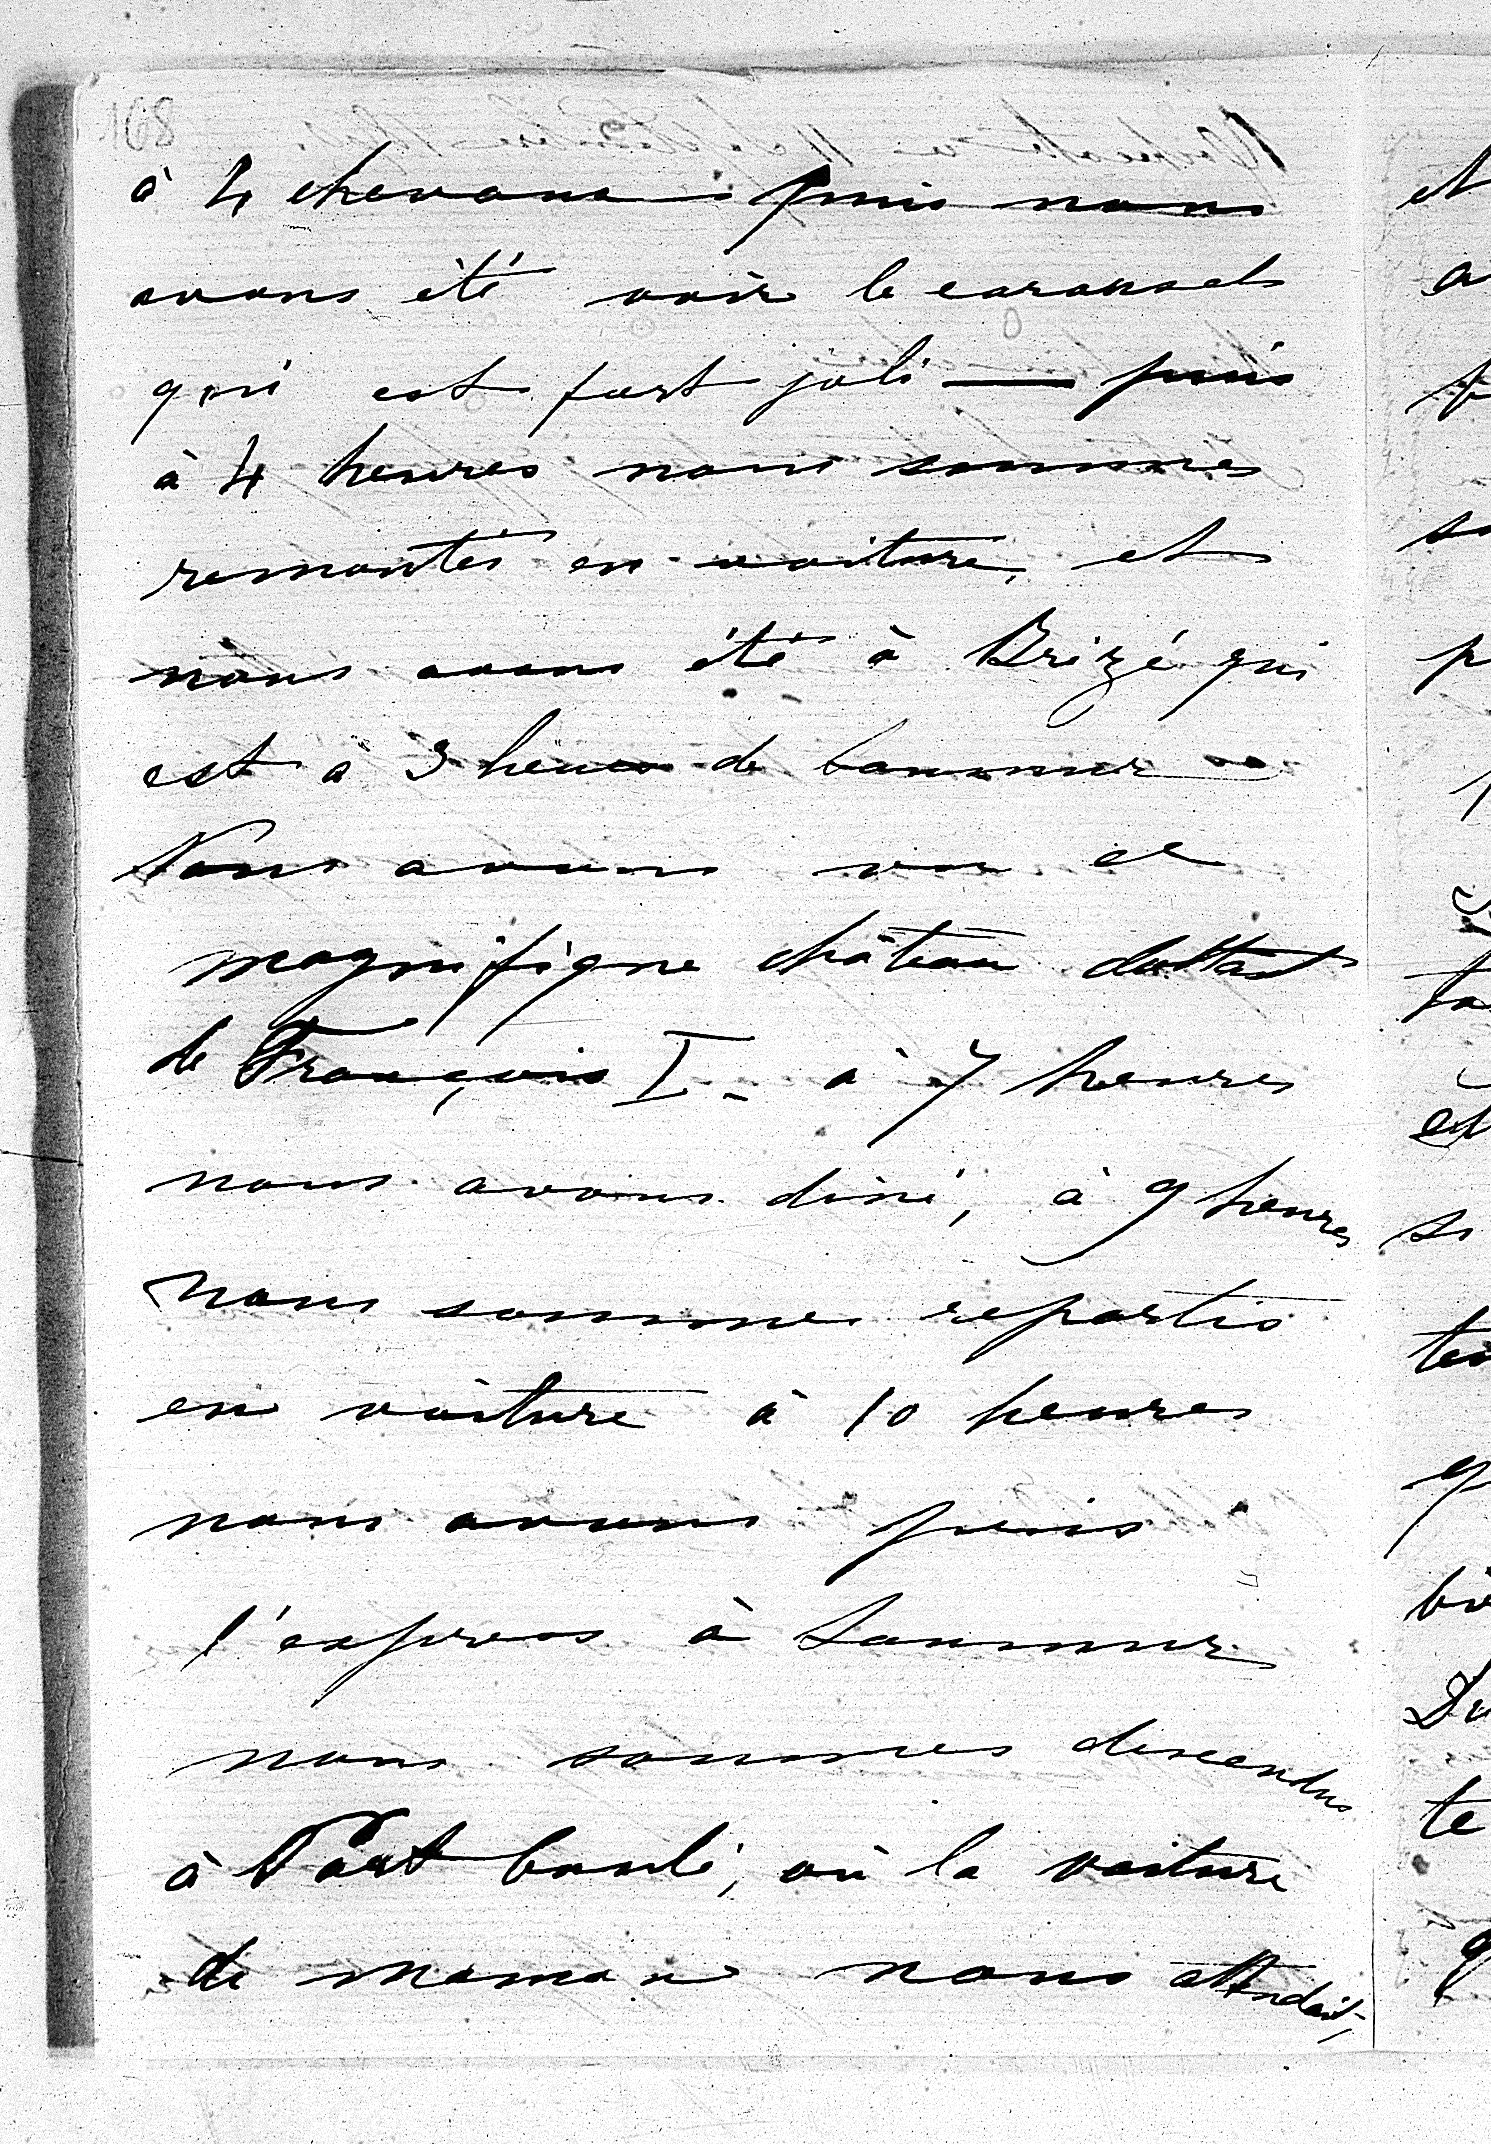 168
à 4 chevaux - puis nous
avons été voir le carousels
qui est fort joli — puis
à 4 heures nous sommes
remontés en voiture, et
nous avons été à Brizé qui
est à 3 heures de Saumur -
Nous avons vu ce
magnifique château dattant
de François I - à 7 heures
nous avons diné, à 9 heures
Nous sommes repartis
en voiture à 10 heures
nous avons pris
l'express à Saumur
nous sommes descendus
à Port boulé, où la voiture
de maman nous attendait,